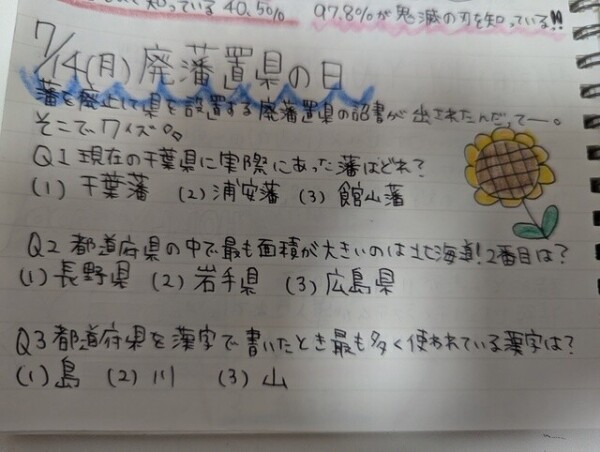 知っている 40.5%
97.8%が鬼滅の刃を知っている!!
7/14(月) 廃藩置県の日
藩を廃止して県を設置する廃藩置県の詔書が出されたんだってー。
そこでクイズ。
Q1 現在の千葉県に実際にあった藩はどれ?
(1) 千葉藩 (2) 浦安藩 (3) 館山藩
Q2 都道府県の中で最も面積が大きいのは北海道!2番目は?
(1) 長野県 (2) 岩手県 (3) 広島県
Q3 都道府県を漢字で書いたとき最も多く使われている漢字は?
(1) 島 (2) 川 (3) 山